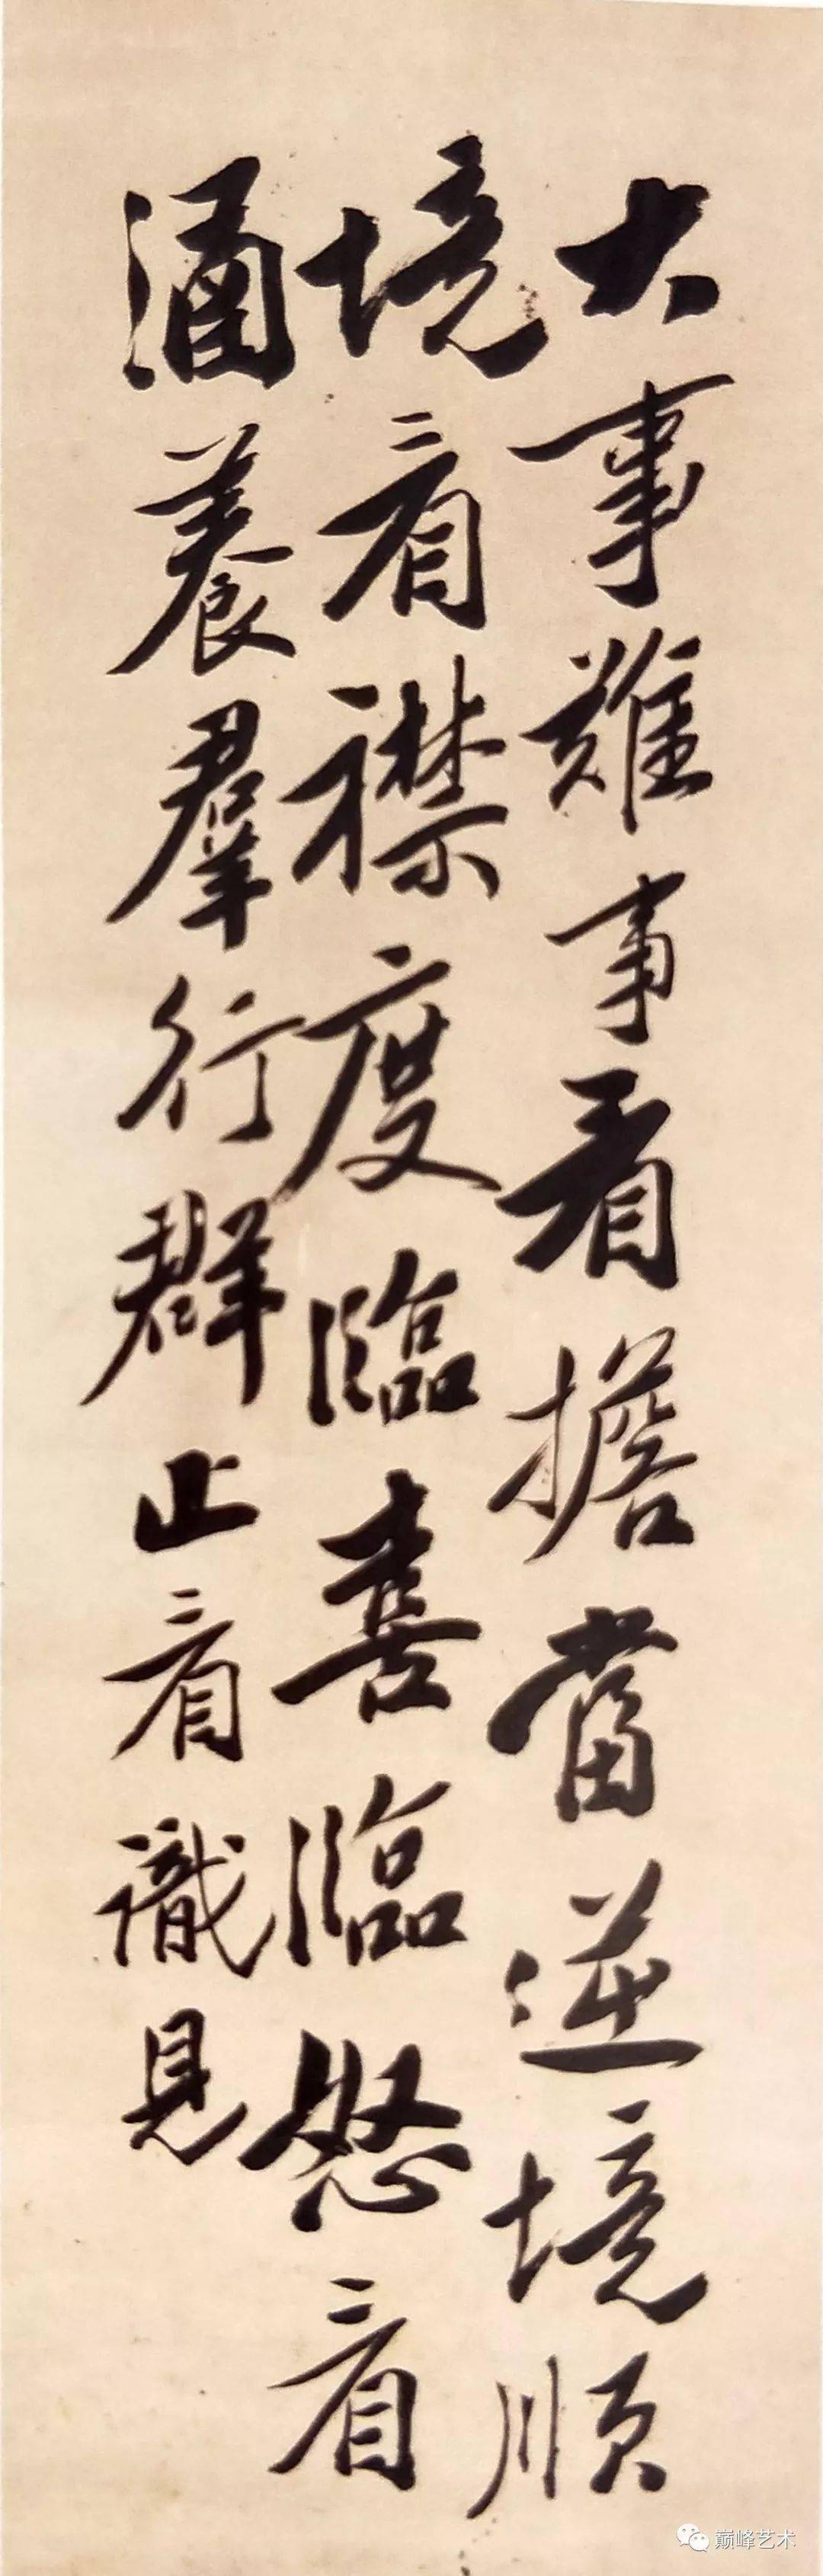 大事難事看擔當逆境順
境看襟度臨喜臨怒看
涵養羣行群止看識見
巅峰艺术